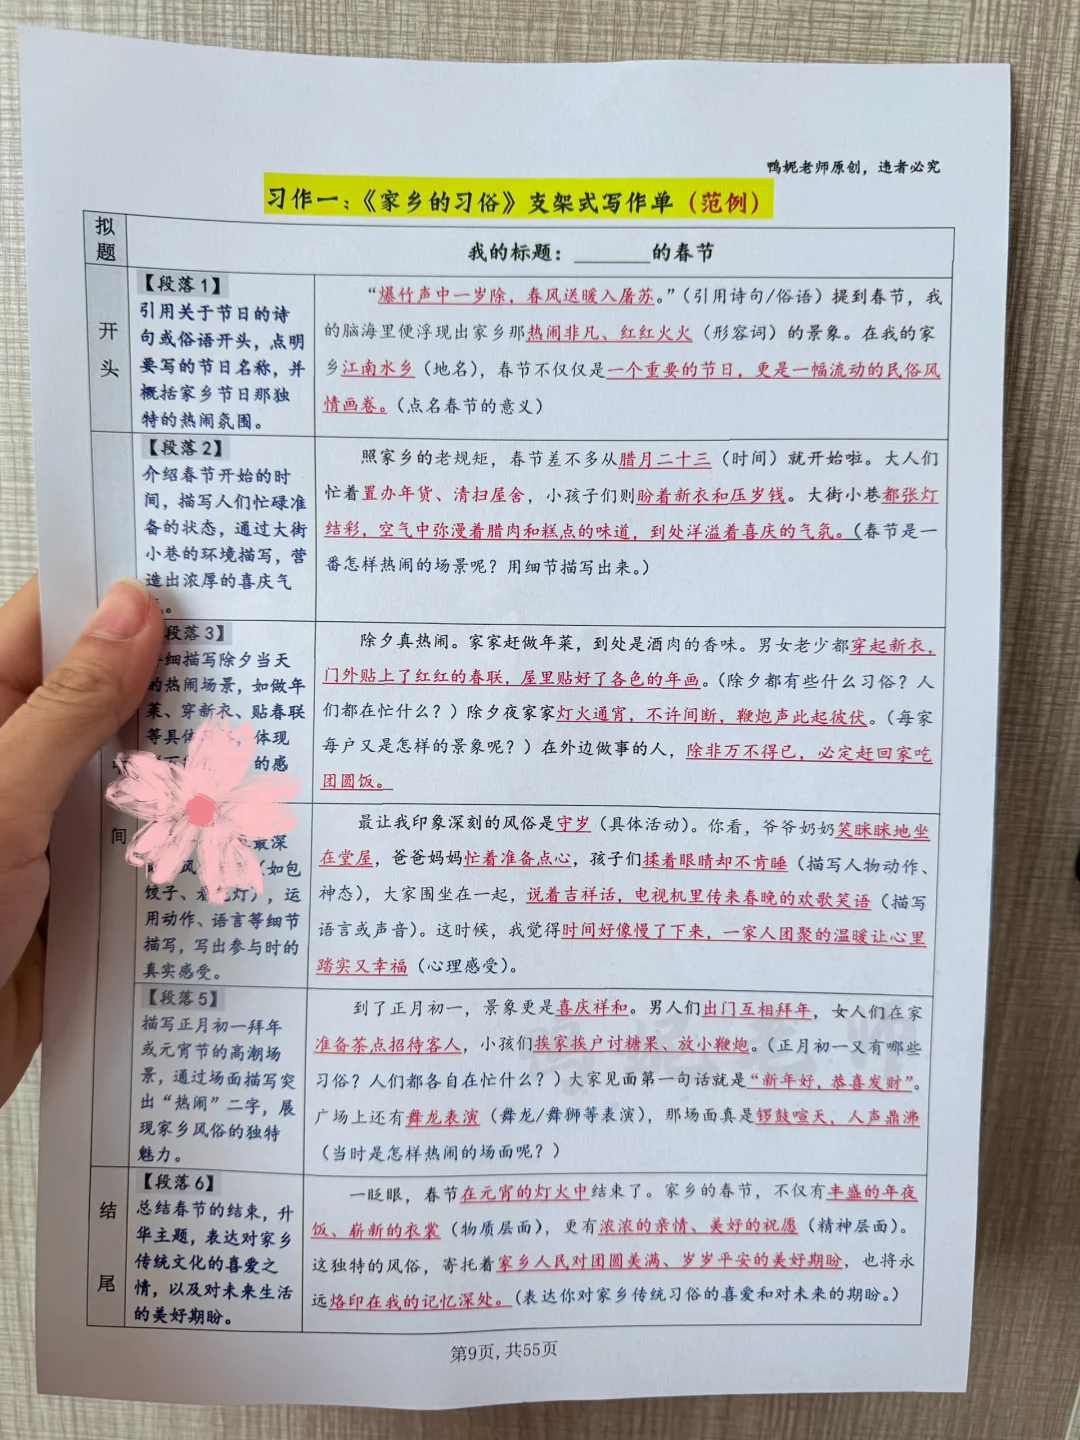 鸭妮老师原创，违者必究
习作一：《家乡的习俗》支架式写作单（范例）
拟题
我的标题：______的春节
开头
【段落1】
引用关于节日的诗
句或俗语开头，点明
要写的节日名称，并
概括家乡节日那独
特的热闹氛围。
“爆竹声中一岁除，春风送暖入屠苏。”（引用诗句/俗语）提到春节，我
的脑海里便浮现出家乡那热闹非凡、红红火火（形容词）的景象。在我的家
乡江南水乡（地名），春节不仅仅是一个重要的节日，更是一幅流动的民俗风
情画卷。（点名春节的意义）
【段落2】
介绍春节开始的时
间，描写人们忙碌准
备的状态，通过大街
小巷的环境描写，营
造出浓厚的喜庆气
。
照家乡的老规矩，春节差不多从腊月二十三（时间）就开始啦。大人们
忙着置办年货、清扫屋舍，小孩子们则盼着新衣和压岁钱。大街小巷都张灯
结彩，空气中弥漫着腊肉和糕点的味道，到处洋溢着喜庆的气氛。（春节是一
番怎样热闹的场景呢？用细节描写出来。）
段落3】
细描写除夕当天
的热闹场景，如做年
菜、穿新衣、贴春联
等具体
，体现
的感
除夕真热闹。家家赶做年菜，到处是酒肉的香味。男女老少都穿起新衣，
门外贴上了红红的春联，屋里贴好了各色的年画。（除夕都有些什么习俗？人
们都在忙什么？）除夕夜家家灯火通宵，不许间断，鞭炮声此起彼伏。（每家
每户又是怎样的景象呢？）在外边做事的人，除非万不得已，必定赶回家吃
团圆饭。
间
最深
风
（如包
饺子、
灯），运
用动作、语言等细节
描写，写出参与时的
真实感受。
最让我印象深刻的风俗是守岁（具体活动）。你看，爷爷奶奶笑眯眯地坐
在堂屋，爸爸妈妈忙着准备点心，孩子们揉着眼睛却不肯睡（描写人物动作、
神态），大家围坐在一起，说着吉祥话，电视机里传来春晚的欢歌笑语（描写
语言或声音）。这时候，我觉得时间好像慢了下来，一家人团聚的温暖让心里
踏实又幸福（心理感受）。
【段落5】
描写正月初一拜年
或元宵节的高潮场
景，通过场面描写突
出“热闹”二字，展
现家乡风俗的独特
魅力。
到了正月初一，景象更是喜庆祥和。男人们出门互相拜年，女人们在家
准备茶点招待客人，小孩们挨家挨户讨糖果、放小鞭炮。（正月初一又有哪些
习俗？人们都各自在忙什么？）大家见面第一句话就是“新年好，恭喜发财”。
广场上还有舞龙表演（舞龙/舞狮等表演），那场面真是锣鼓喧天，人声鼎沸
（当时是怎样热闹的场面呢？）
结尾
【段落6】
总结春节的结束，升
华主题，表达对家乡
传统文化的喜爱之
情，以及对未来生活
的美好期盼。
一眨眼，春节在元宵的灯火中结束了。家乡的春节，不仅有丰盛的年夜
饭、崭新的衣裳（物质层面），更有浓浓的亲情、美好的祝愿（精神层面）。
这独特的风俗，寄托着家乡人民对团圆美满、岁岁平安的美好期盼，也将永
远烙印在我的记忆深处。（表达你对家乡传统习俗的喜爱和对未来的期盼。）
第9页，共55页